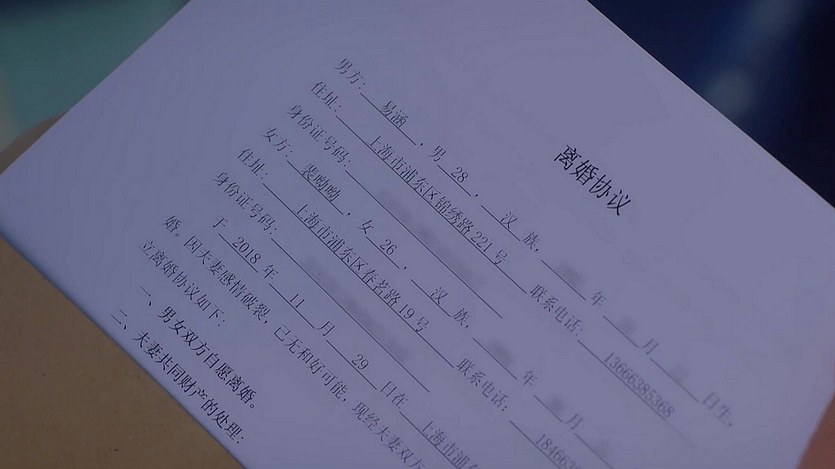 离婚协议
男方：易涵，男 28，汉族，年月日生，
住址：上海市浦东区锦绣路221号 联系电话：13666385368
身份证号码：
女方：裴呦呦，女 26，汉族，年月
住址：上海市浦东区春茗路19号 联系电话：18466
身份证号码：
于 2018 年 11 月 29 日在 上海市浦东
婚。因夫妻感情破裂，已无和好可能，现经夫妻双方
立离婚协议如下：
一、男女双方自愿离婚。
二、夫妻共同财产的处理：